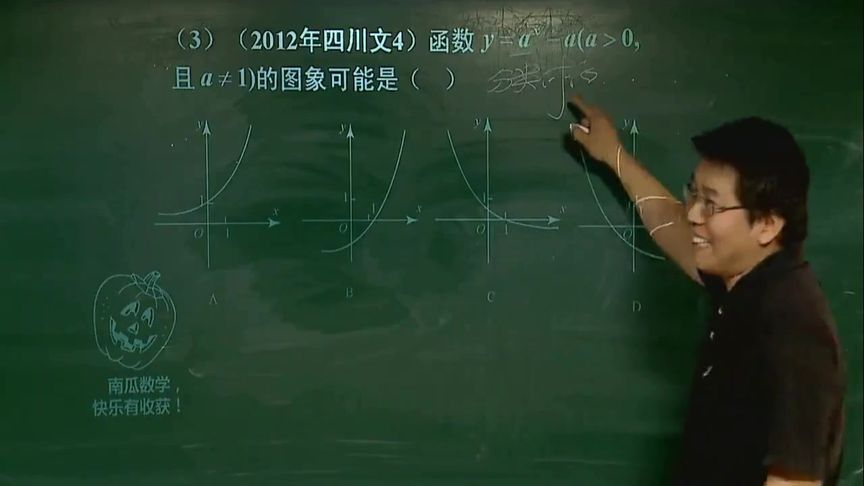 （3）（2012年四川文4）函数 y = aˣ − a(a > 0,
且 a ≠ 1)的图象可能是（ ）
分类讨论
y y y y
1 1 1 1
O 1 x O 1 x O 1 x O
A B C D
南瓜数学，
快乐有收获！